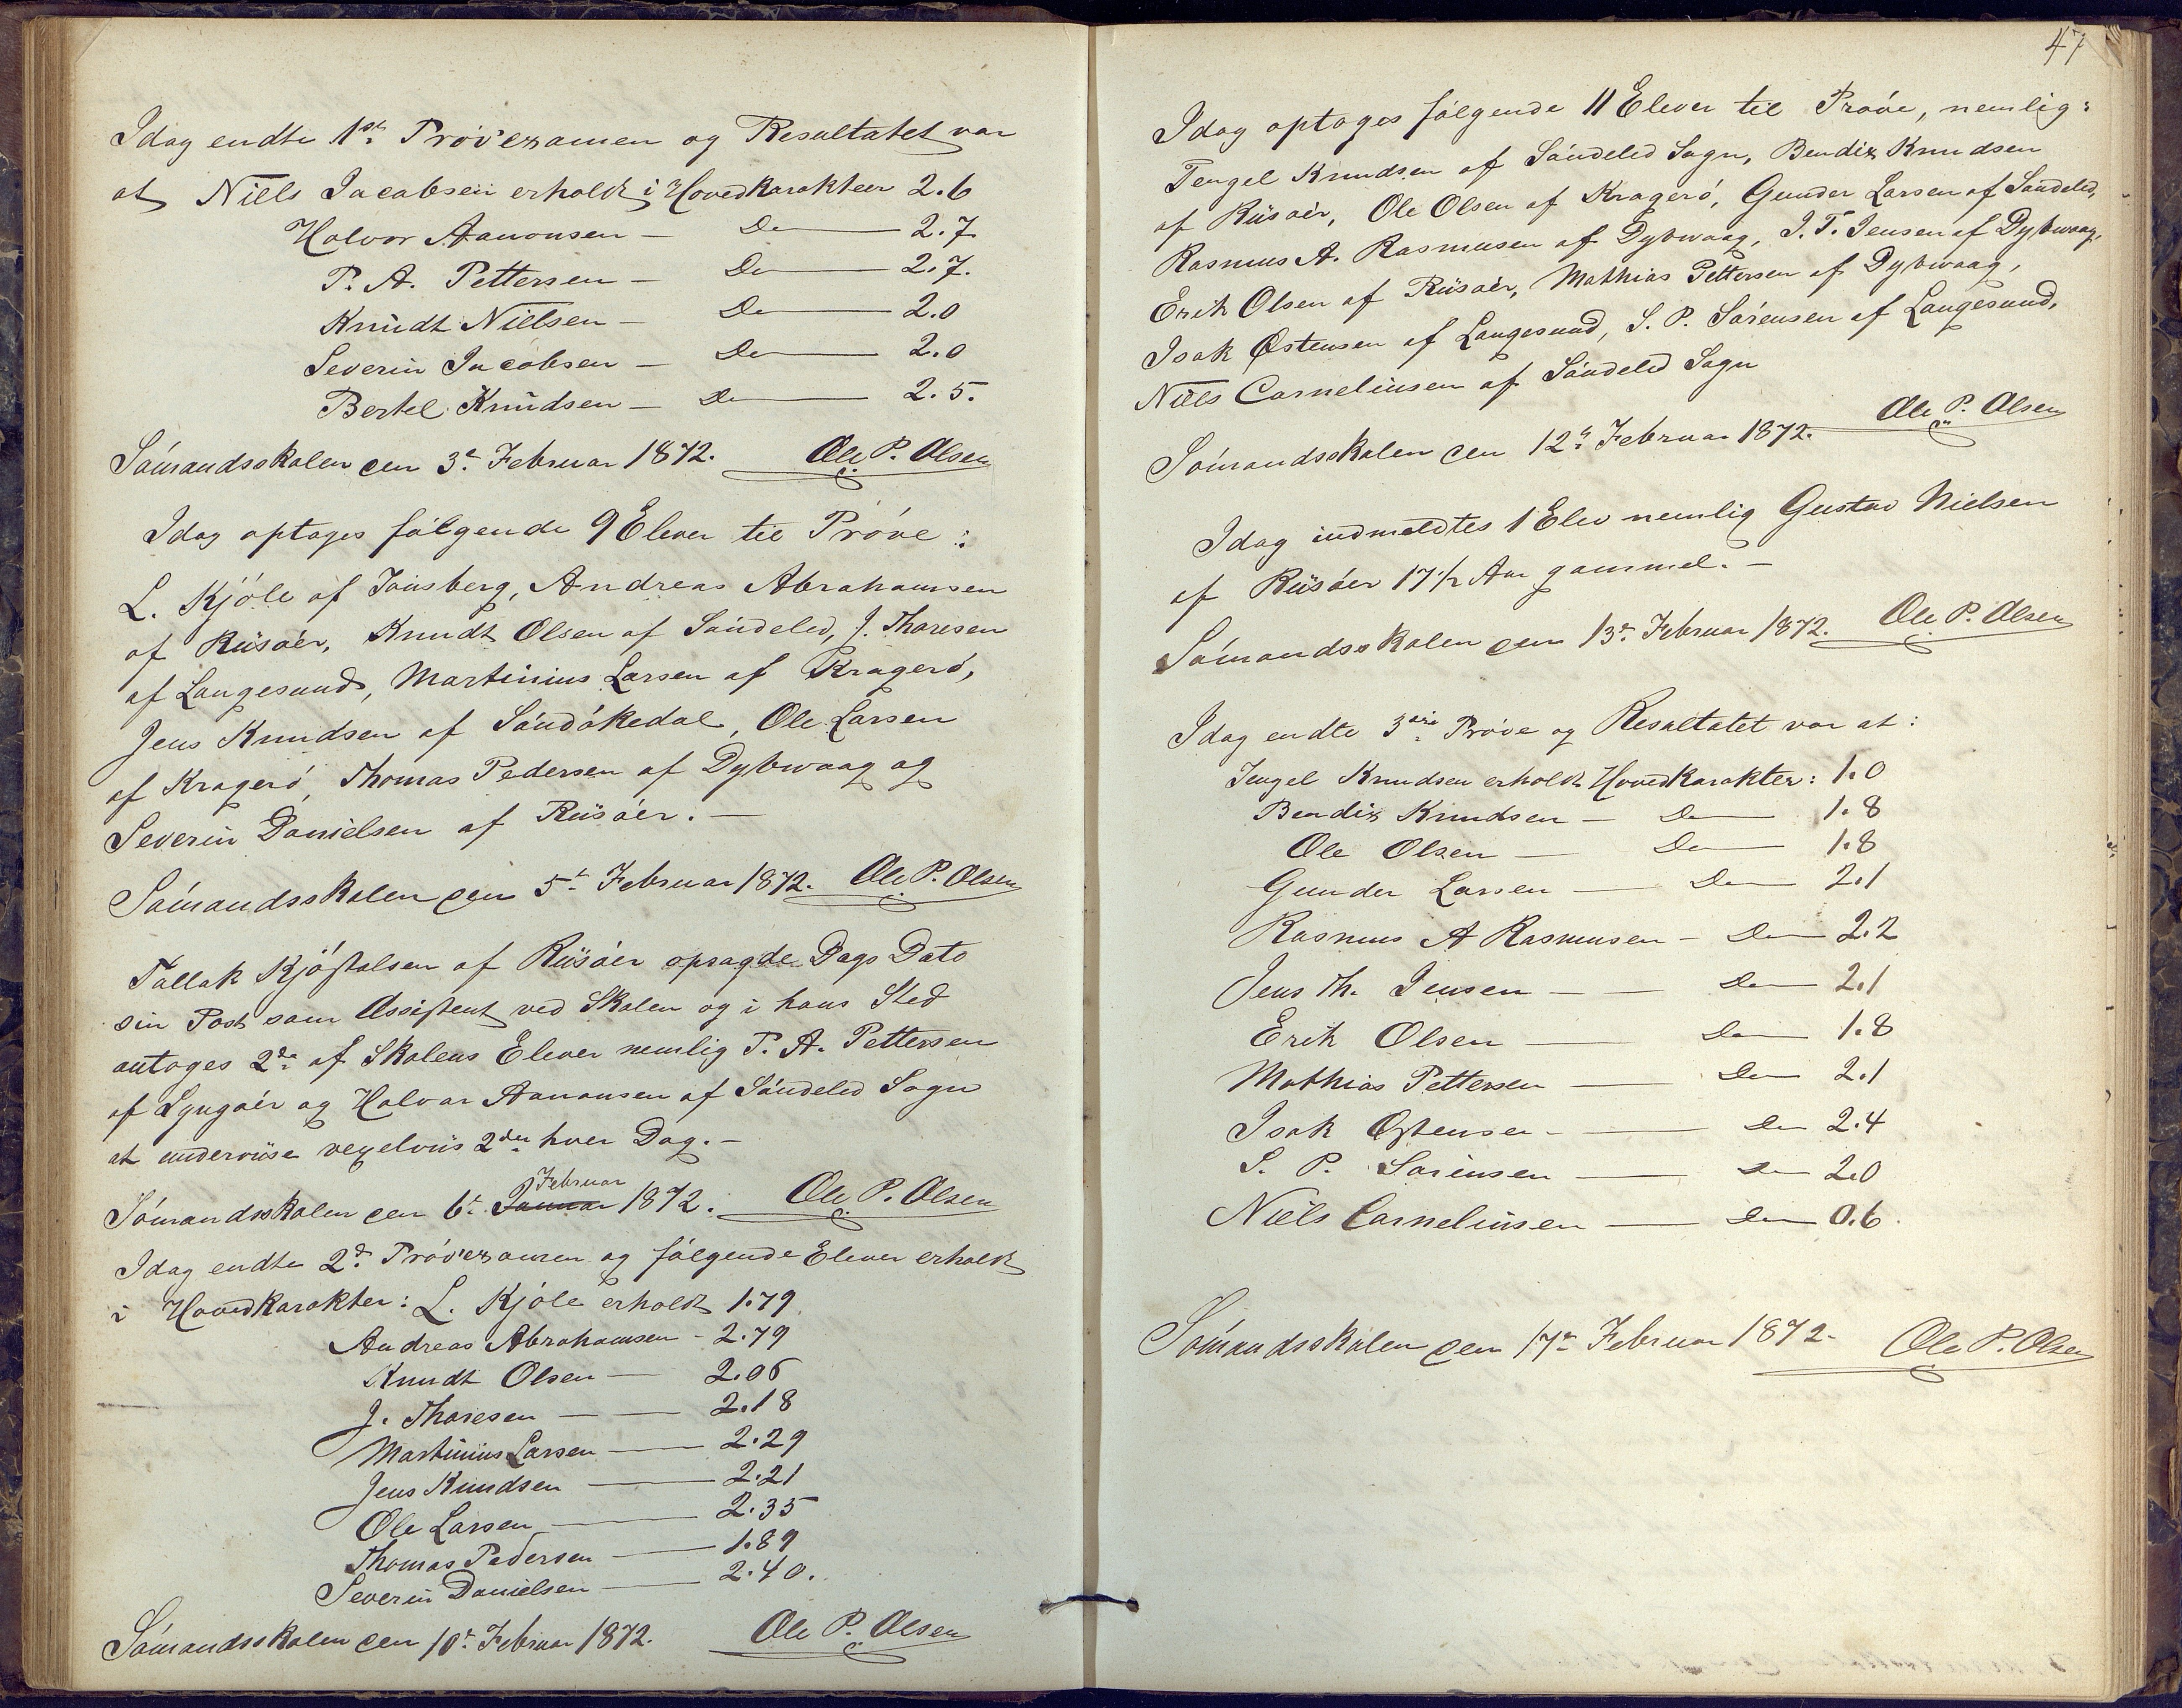 Idag endte 1ste Prövexamen og Resultatet var
at Niels Jacobsen erholdt i Hovedkarakteer 2.6
Halvor Aanonsen — Do — 2.7.
P. A. Pettersen — Do — 2.7.
Knudt Nielsen — Do — 2.0
Severin Jacobsen — Do — 2.0
Bertel Knudsen — Do — 2.5.
Sömandsskolen den 3d. Februar 1872. Ole P. Olsen
Idag optages fölgende 9 Elever til Pröve:
L. Kjöle af Tönsberg, Andreas Abrahamsen
af Riisöer, Knudt Olsen af Söndeled, J. Thoresen
af Langesund, Martinius Larsen af Kragerö,
Jens Knudsen af Söndökedal, Ole Larsen
af Kragerö, Thomas Pedersen af Dybwaag og
Severin Danielsen af Riisöer. —
Sömandsskolen den 5t. Februar 1872. Ole P. Olsen
Tallak Kjöstolsen af Riisöer opsagde Dags Dato
sin Post som Assistent ved Skolen og i hans Sted
antoges 2de af Skolens Elever nemlig P. A. Pettersen
af Lyngöer og Halvor Aanonsen af Söndeled Sogn
at undervise vexelviis 2den hver Dag. —
Februar
Sömandsskolen den 6t. Januar 1872. Ole P. Olsen
Idag endte 2d. Prövexamen og fölgende Elever erholdt
i Hovedkarakter: L. Kjöle erholdt 1.79
Andreas Abrahamsen - 2.79
Knudt Olsen — 2.06
J. Thoresen — — 2.18
Martinius Larsen — 2.29
Jens Knudsen — 2.21
Ole Larsen — 2.35
Thomas Pedersen — 1.89
Severin Danielsen — 2.40.
Sömandsskolen den 10d. Februar 1872. Ole P. Olsen
47
Idag optoges fölgende 11 Elever til Pröve, nemlig:
Tengel Knudsen af Söndeled Sogn, Bendix Knudsen
af Riisöer, Ole Olsen af Kragerö, Gunder Larsen af Söndeled,
Rasmus A. Rasmusen af Dybwaag, J. T. Jensen af Dybwaag,
Erik Olsen af Riisöer, Mathias Pettersen af Dybwaag,
Isak Østensen af Langesund, S. P. Sörensen af Langesund,
Niels Corneliusen af Söndeled Sogn
Sömandsskolen den 12d. Februar 1872. Ole P. Olsen
Idag indmeldtes 1 Elev nemlig Gustav Nielsen
af Riisöer 17 1/2 Aar gammel. —
Sömandsskolen den 13d. Februar 1872. Ole P. Olsen
Idag endte 3die Pröve og Resultatet var at:
Tengel Knudsen erholdt Hovedkarakter: 1.0
Bendix Knudsen — Do — 1.8
Ole Olsen — Do — 1.8
Gunder Larsen — Do — 2.1
Rasmus A Rasmusen — Do — 2.2
Jens Th. Jensen — — Do — 2.1
Erik Olsen — Do — 1.8
Mathias Pettersen — Do — 2.1
Isak Østensen — — Do 2.4
S. P. Sörensen — Do 2.0
Niels Corneliusen — Do 0.6.
Sömandsskolen den 17d. Februar 1872. Ole P. Olsen